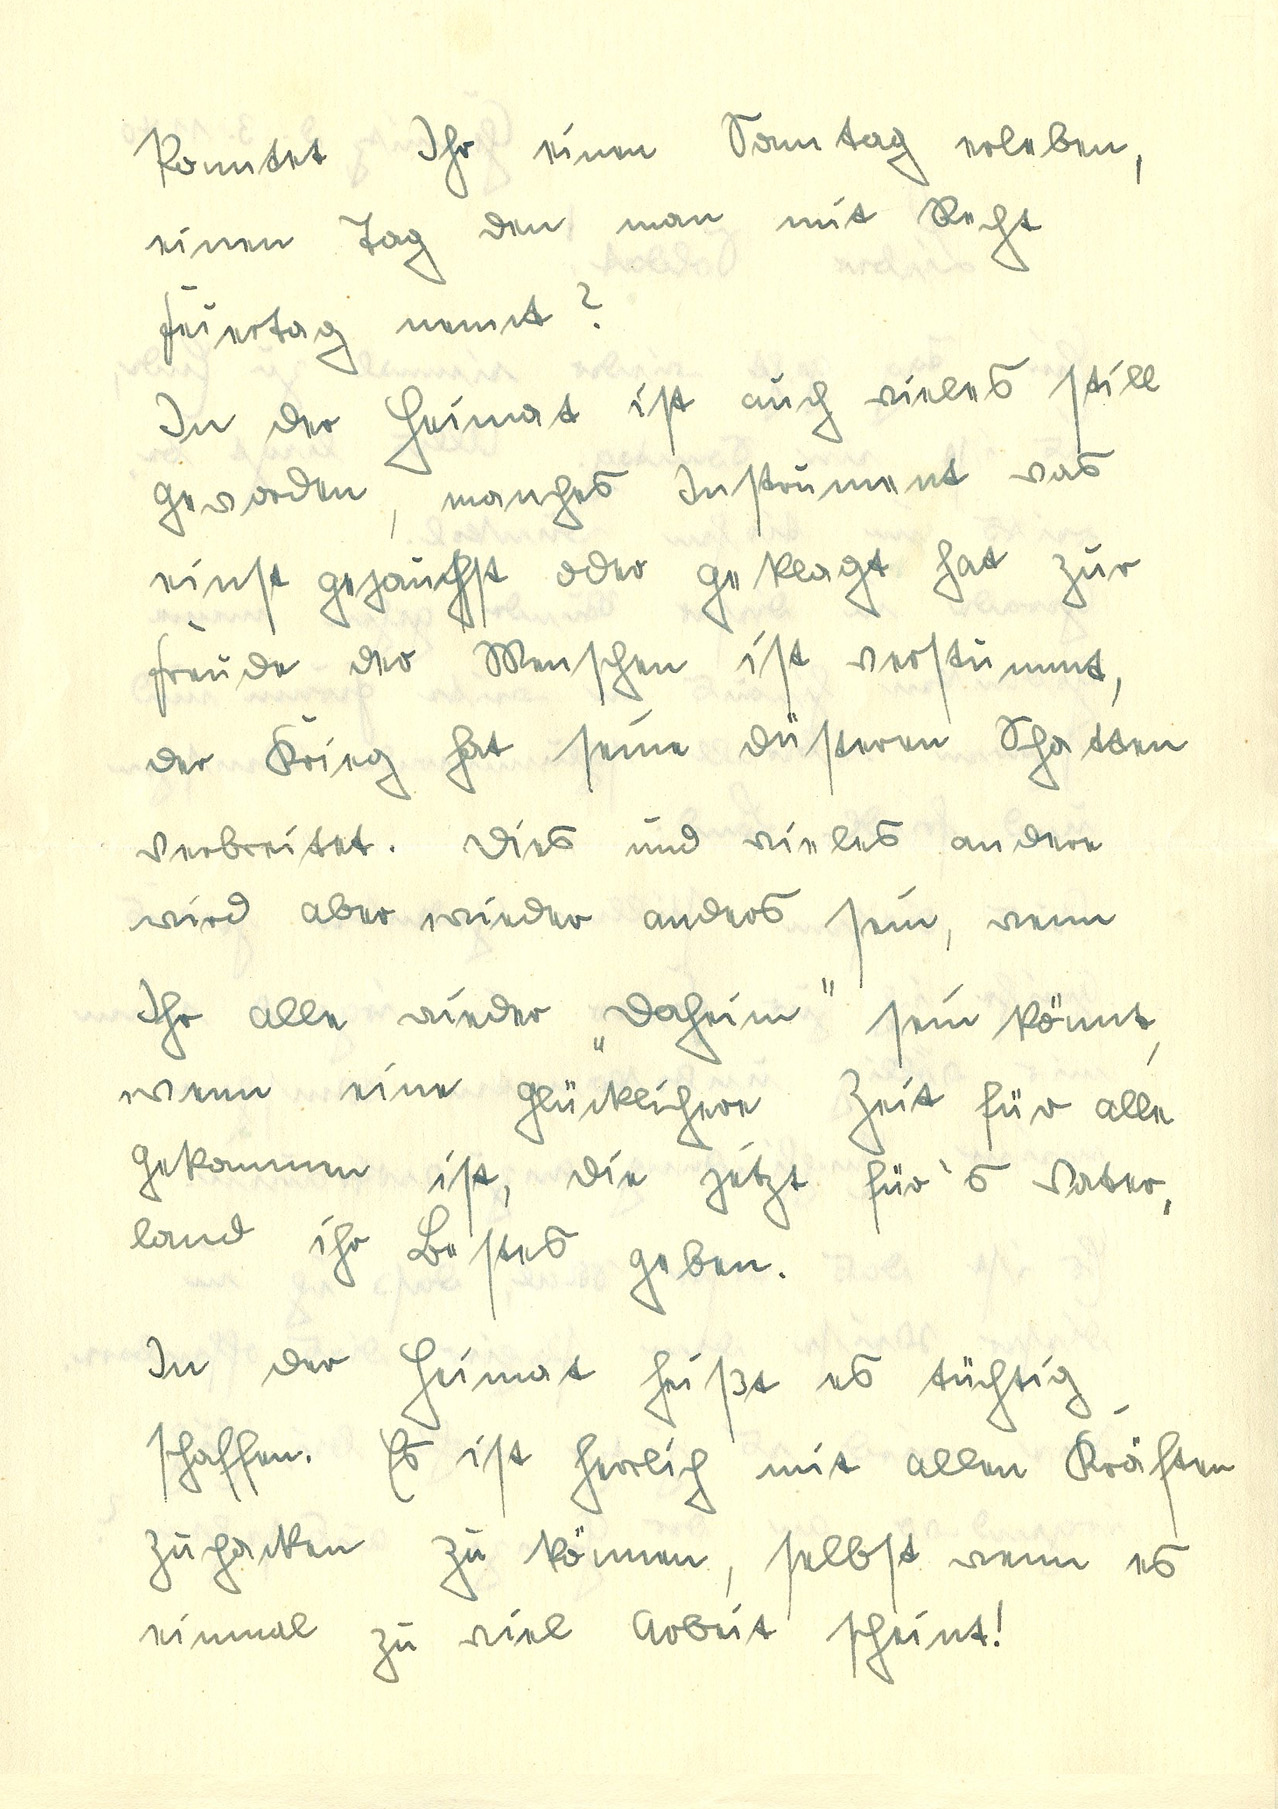 Konntet Ihr einen Sonntag erleben,
einen Tag den man mit Recht
Feiertag nennt?
In der Heimat ist auch vieles still
geworden, manches Instrument was
einst gejauchst oder geklagt hat zur
Freude der Menschen ist verstummt,
der Krieg hat seine düsteren Schatten
verbreitet. Dies und vieles andere
wird aber wieder anders sein, wenn
Ihr alle wieder „Daheim" sein könnt,
wenn eine glücklichere Zeit für alle
gekommen ist, die jetzt für's Vater,
land ihr Bestes geben.
In der Heimat heißt es tüchtig
schaffen. Es ist herrlich mit allen Kräften
zupacken zu können, selbst wenn es
einmal zu viel Arbeit scheint!